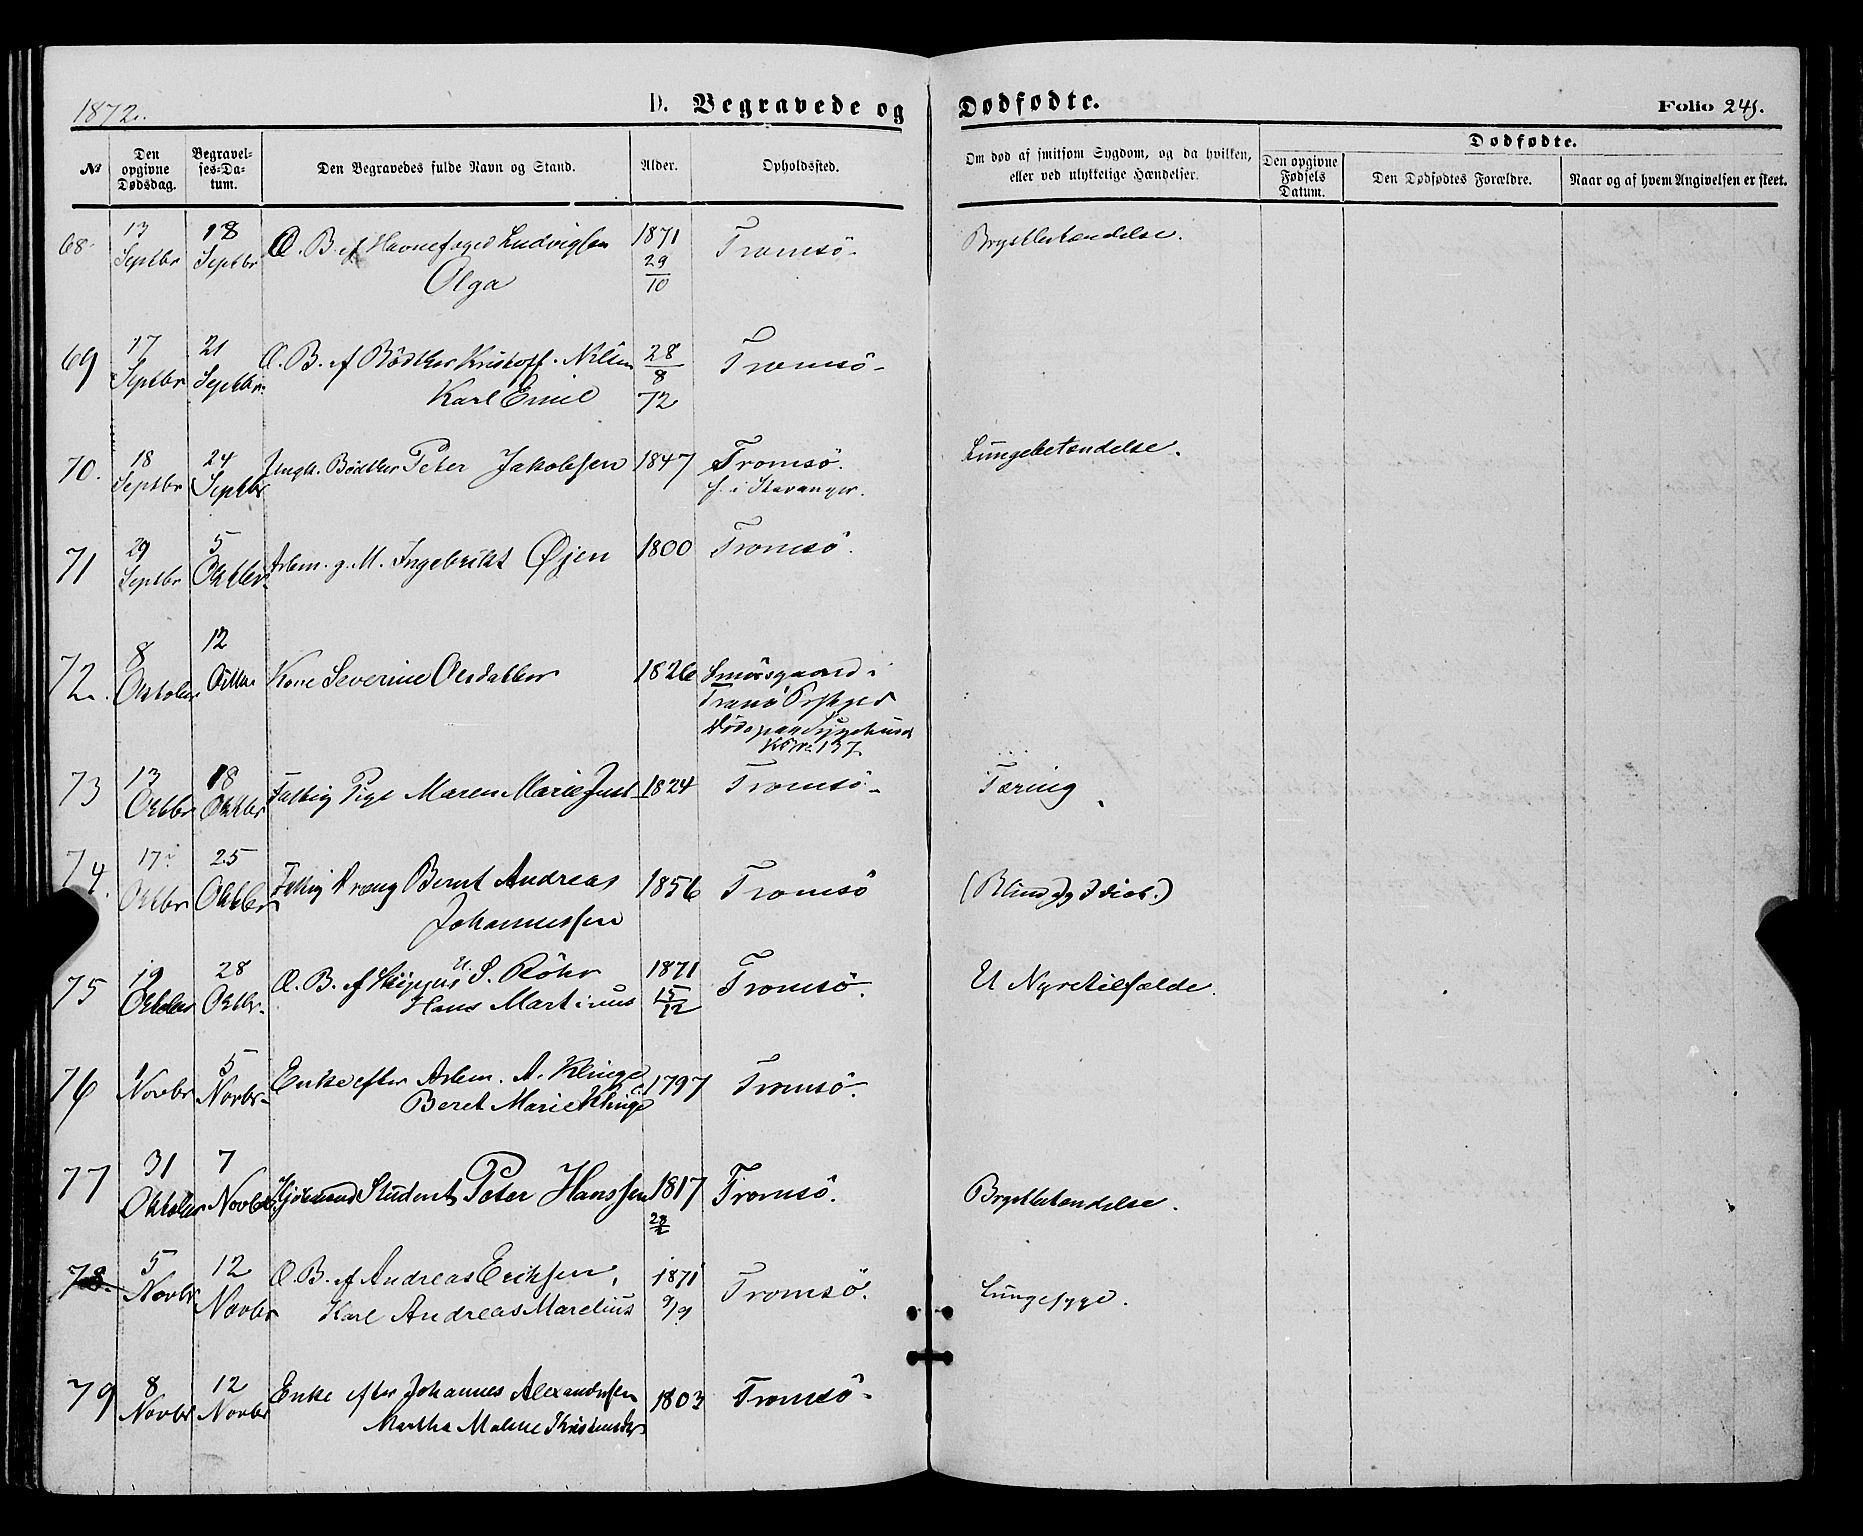 1872.
D. Begravede og Dødfødte.
Folio 245.
No
Den opgivne Dødsdag.
Begravelses-Datum.
Den Begravedes fulde Navn og Stand.
Alder.
Opholdssted.
Om død af smitsom Sygdom, og da hvilken, eller ved ulykkelige Hændelser.
Dødfødte.
Den opgivne Fødsels Datum.
Den Dødfødtes Forældre.
Naar og af hvem Angivelsen er skeet.
68 13 Septbr 18 Septbr Æ. B. af Havnefoged Ludvigsen 1871 29/10 Tromsö. Brystbetændelse.
Olga
69 17 Septbr 21 Septbr. Æ. B. af Bødker Kristoff. Nilsen 28/8 72 Tromsö.
Karl Emil
70. 18 Septbr 24 Septbr Ungk. Bødker Peter Jakobsen 1847 Tromsö. Lungebetændelse.
f. i Stavanger.
71 29 Septbr 5 Oktbr. Arbm. g. M. Ingebrikt Øjen 1800 Tromsö.
72. 8 Oktober 12 Kone Severine Olesdatter 1826 i
Tranö Prstgjed
Sygehuset
137
73 13 Oktbr 18 Oktbr Fattig Pige Maren Marie Just 1824 Tromsö. Tæring.
74. 17 Oktbr 25 Oktbr Fattig Dreng Bernt Andreas 1856 Tromsö (Blind og Idiot.)
Johannessen
75 19 Oktober 28 Oktbr. Æ. B. af Skipper U. S. Röhr 1871 15/12 Tromsö. Et Nyretilfælde.
Hans Martinus
76 1 Novbr 5 Novbr. Enke efter Arbm. A. Klinge 1797 Tromsö.
Beret Marie Klinge
77 31 Oktober 7 Novbr Student Peter Hanssen 1817 Tromsö. Brystbetændelse.
78. 5 Novbr 12 Novbr Æ. B. af Andreas Eriksen, 1871 9/9 Tromsö. Lungesyge.
Karl Andreas Marelius
79 8 Novbr 12 Novbr Enke efter Johannes Alexandersen 1803 Tromsö.
Martha Malene Kristensdtr